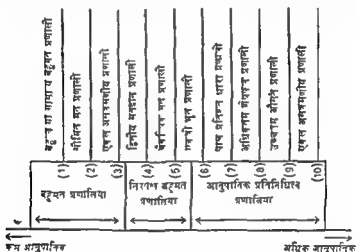 बहुमत या सामान्य बहुमत प्रणाली
(1)
सीमित मत प्रणाली
(2)
एकल असंक्रमणीय प्रणाली
(3)
द्वितीय मतदान प्रणाली
(4)
वैकल्पिक मत प्रणाली
(5)
संचयी मत प्रणाली
(6)
पाँच प्रतिशत धारा प्रणाली
(7)
अधिकतम शेषफल प्रणाली
(8)
उच्चतम औसत प्रणाली
(9)
एकल संक्रमणीय प्रणाली
(10)
बहुमत प्रणालिया
निरपेक्ष बहुमत
प्रणालिया
आनुपातिक प्रतिनिधित्व
प्रणालिया
कम आनुपातिक
अधिक आनुपातिक